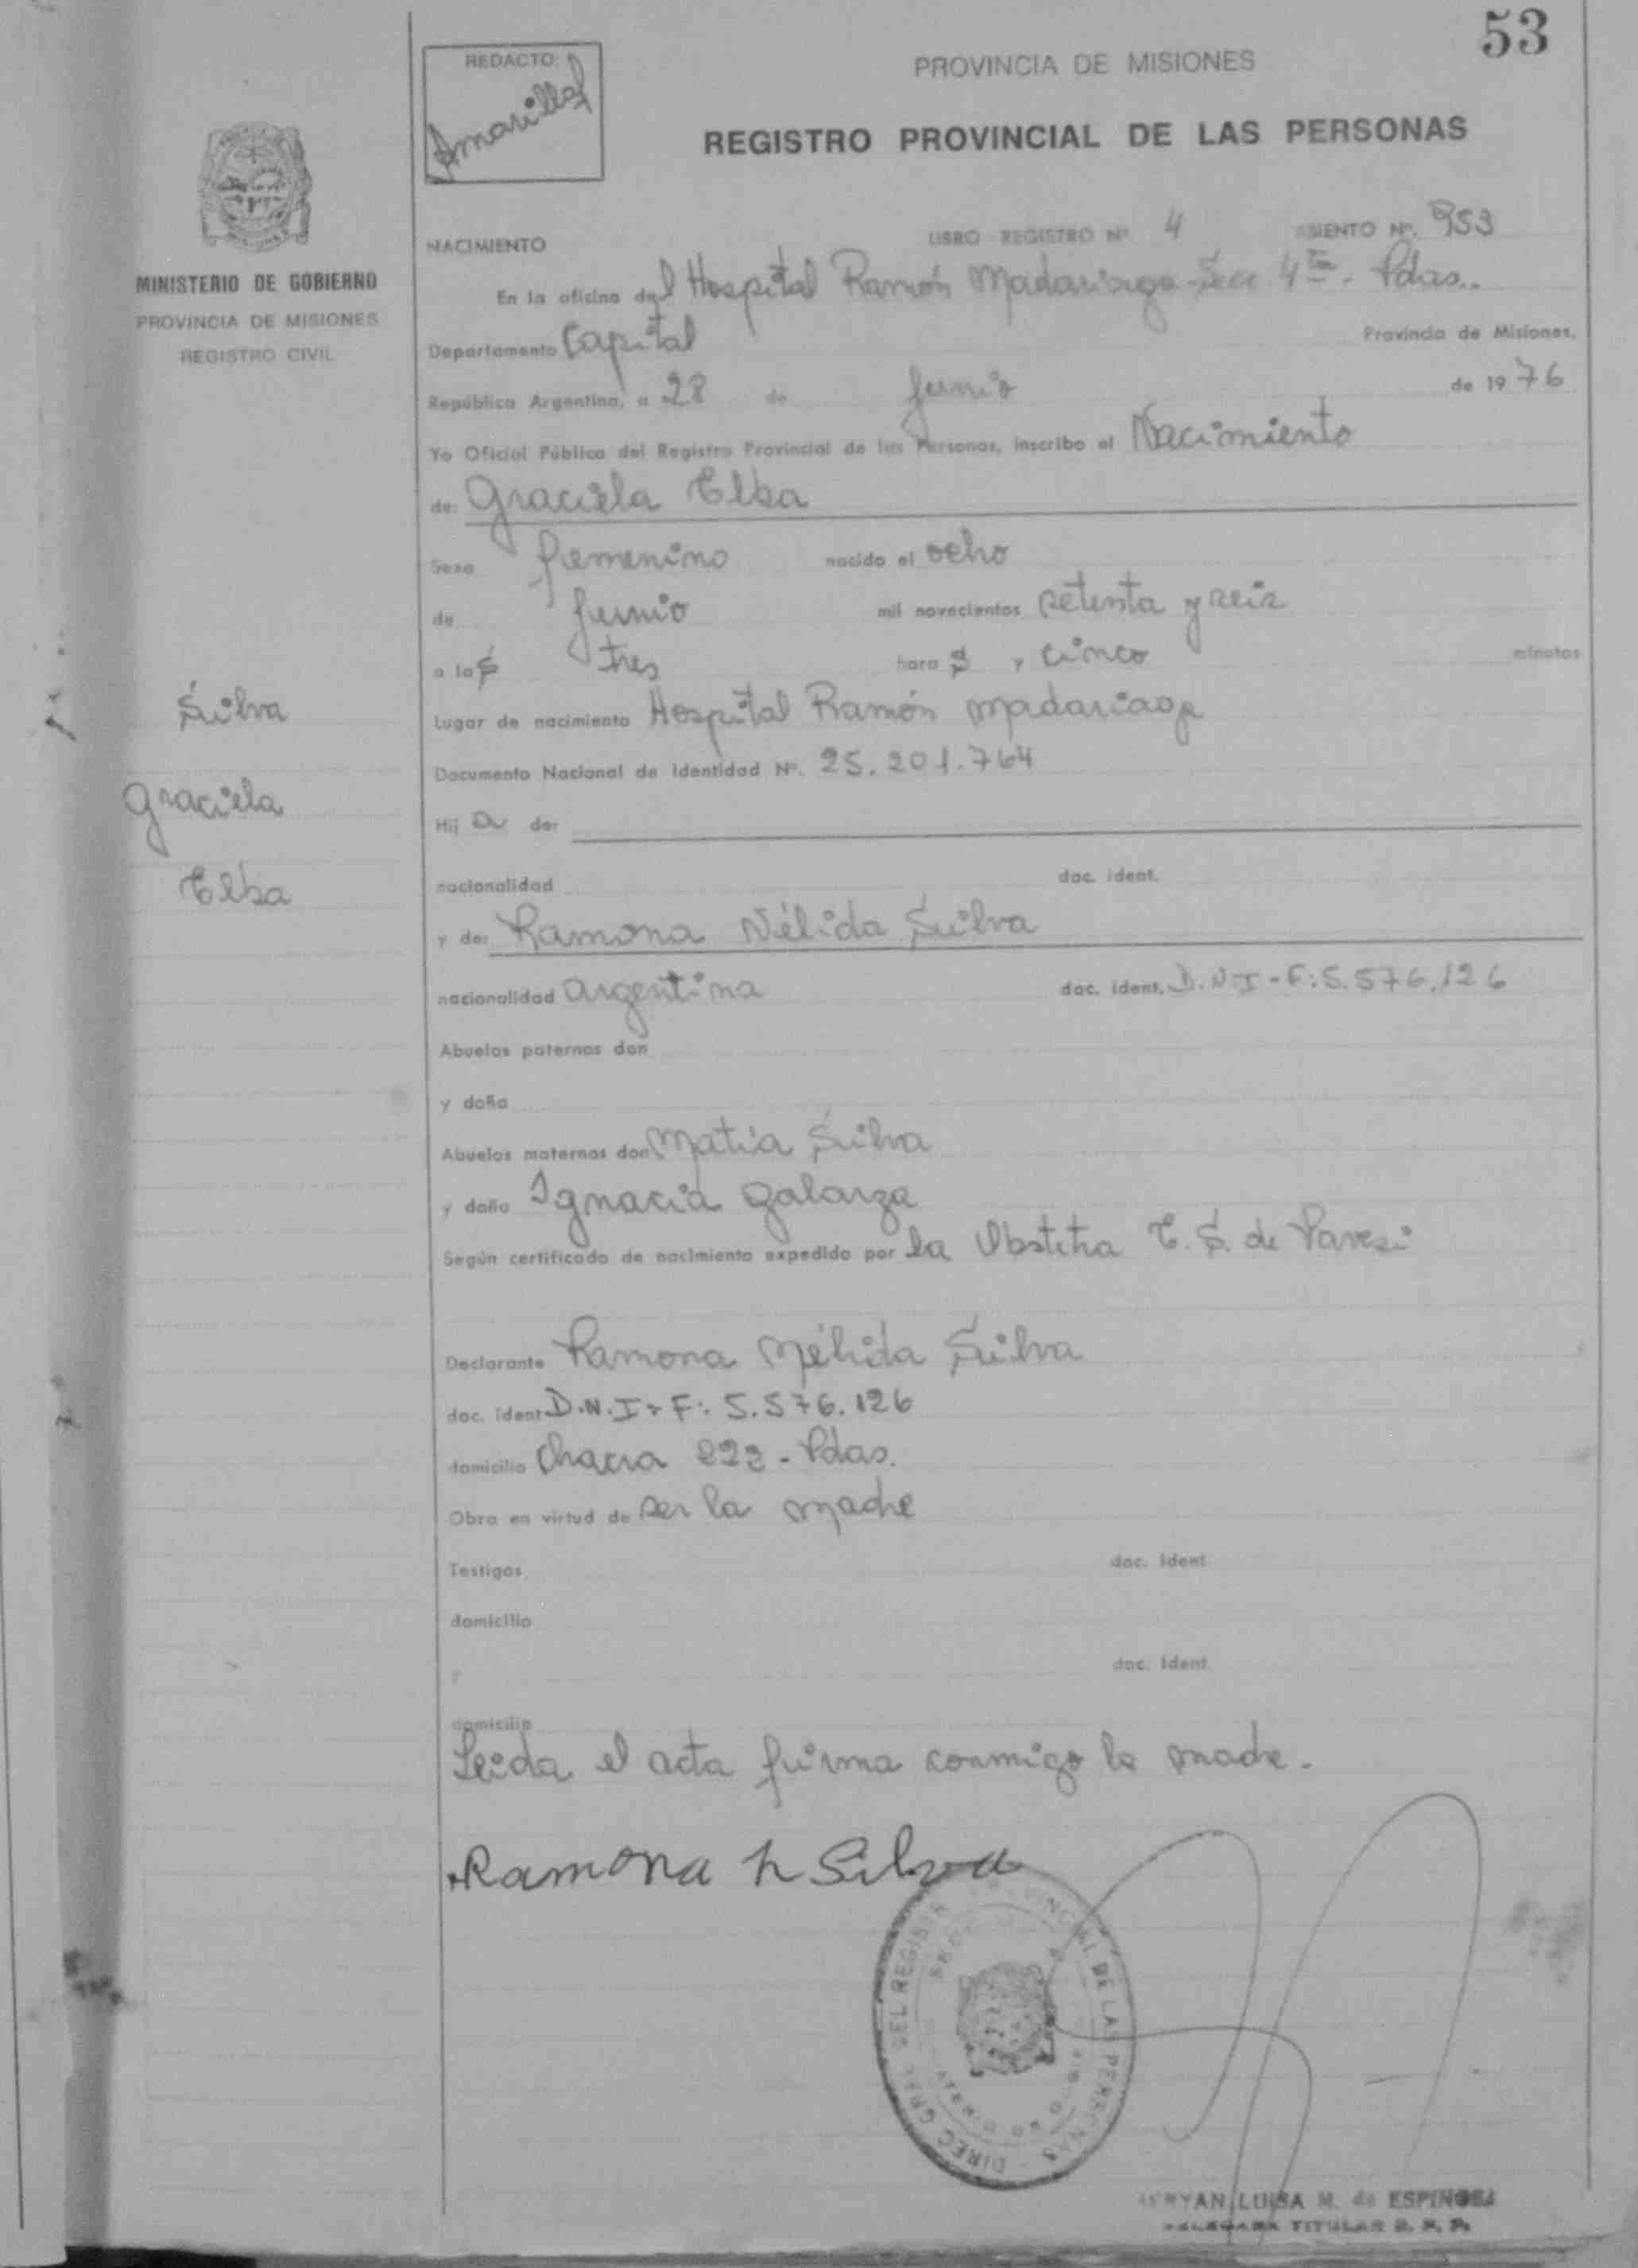 53
REDACTO:
Amarilla
PROVINCIA DE MISIONES
REGISTRO PROVINCIAL DE LAS PERSONAS
MINISTERIO DE GOBIERNO
PROVINCIA DE MISIONES
REGISTRO CIVIL
NACIMIENTO LIBRO REGISTRO Nº 4 ASIENTO Nº. 953
En la oficina del Hospital Ramón Madariaga - Secc 4ta - Pdas.
Departamento Capital Provincia de Misiones,
República Argentina, a 28 de Junio de 1976
Yo Oficial Público del Registro Provincial de las Personas, inscribo el Nacimiento
de: Graciela Elba
Sexo femenino nacido el ocho
de Junio mil novecientos setenta y seis
a las tres horas y cinco minutos
Silva
Graciela
Elba
Lugar de nacimiento Hospital Ramón Madariaga
Documento Nacional de Identidad Nº. 25.201.764
Hija de:
nacionalidad doc. ident.
y de: Ramona Nélida Silva
nacionalidad argentina doc. ident. D.N.I - F: 5.576.126
Abuelos paternos don
y doña
Abuelos maternos don Matia Silva
y doña Ignacia Galarza
Según certificado de nacimiento expedido por la Obstetra E. S. de
Declarante Ramona Nélida Silva
doc. ident D.N.I - F: 5.576.126
domicilio Chacra 222 - Pdas.
Obra en virtud de ser la madre
Testigos doc. ident.
domicilio
y doc. ident.
domicilio
Leida el acta firma conmigo la madre.
Ramona N Silva
DIREC. GRAL. DEL REGISTRO PROVINCIAL DE LAS PERSONAS
LUISA M. de ESPINOSA
DELEGADA TITULAR R. P. P.